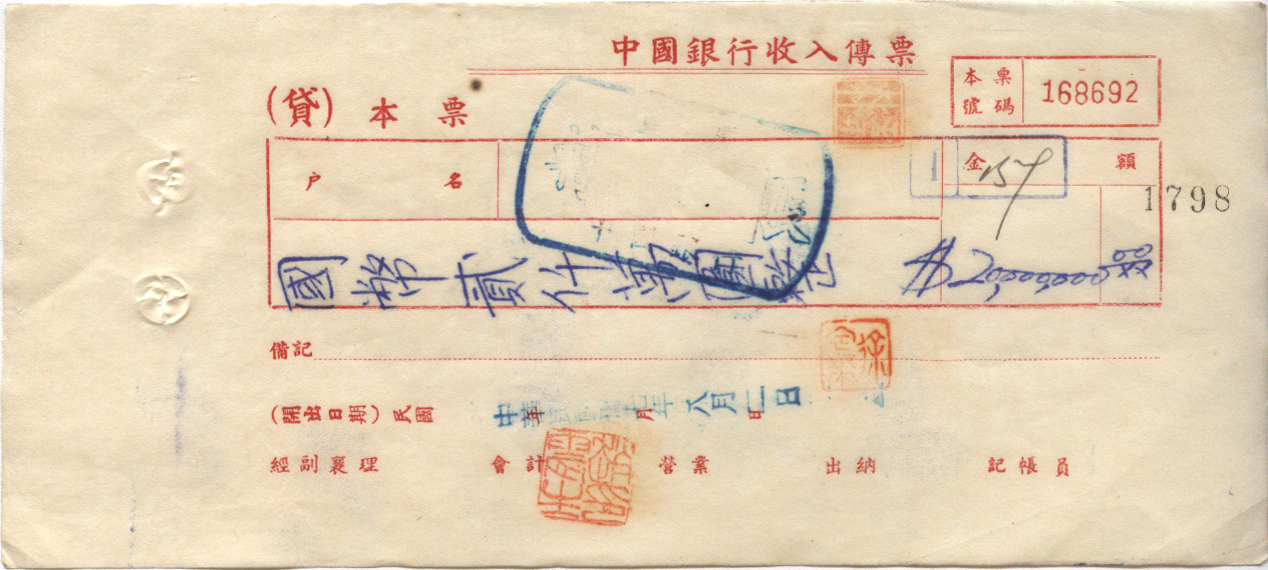 中國銀行收入傳票
(貸) 本票
本票號碼 168692
戶名
金額
157
1798
國幣貳仟萬圓整 $20,000,000.00
備記
(開出日期) 民國 年 月 日
中華民國卅七年八月二日
經副襄理 會計 營業 出納 記帳員